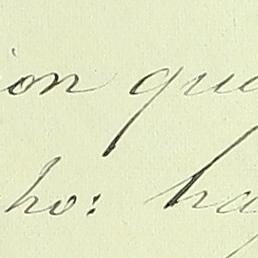 ion qua
ho: ha